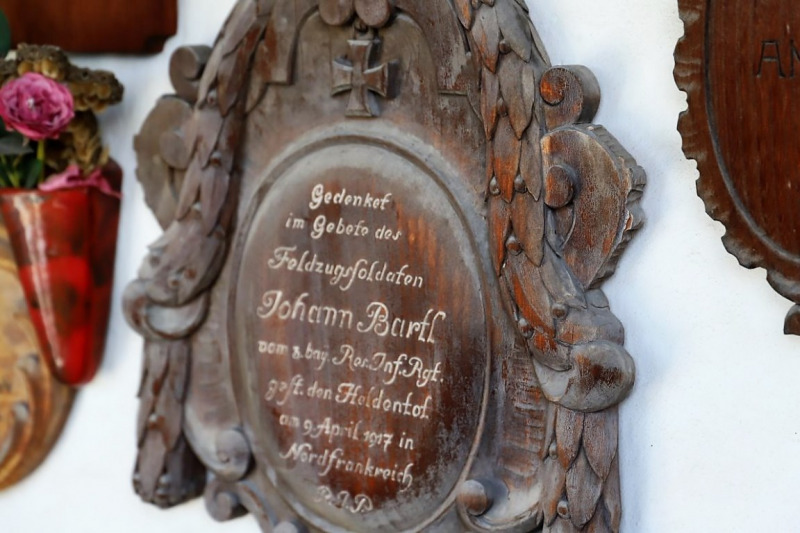 Gedenket
im Gebete des
Feldzugsoldaten
Johann Bartl
vom 8. bay. Res. Inf. Rgt.
gest. den Heldentot
am 9 April 1917 in
Nordfrankreich
R.I.P
AN